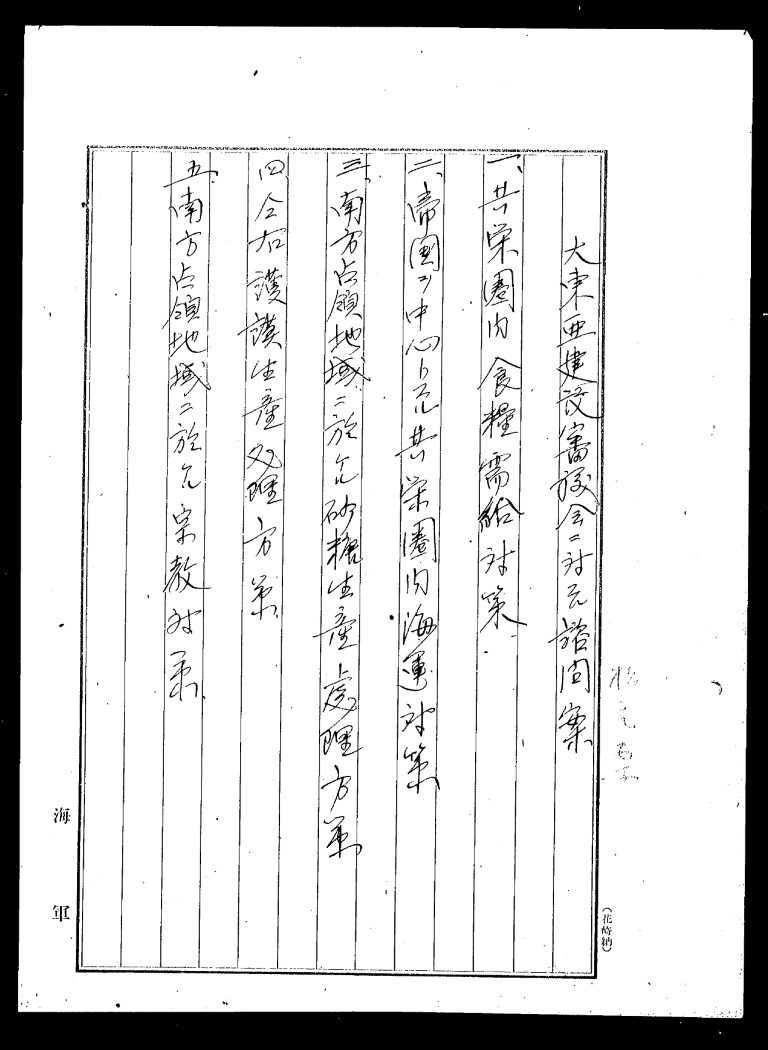 大東亜建設審議会ニ対スル諮問案
一、共栄圏内食糧需給対策
二、帝国ヲ中心トスル共栄圏内海運対策
三、南方占領地域ニ於ケル砂糖生産ト処理方策
四、仝右護謨生産処理方策
五、南方占領地域ニ於ケル宗教対策
海軍